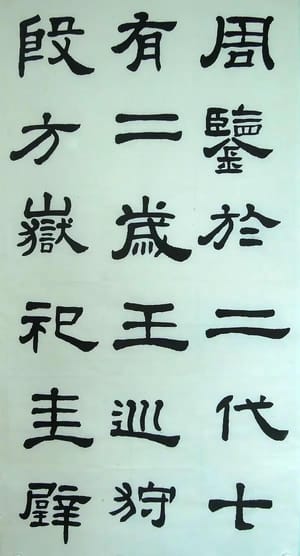 周鑒於二代十
有二歲王巡狩
殷方嶽祀圭璧